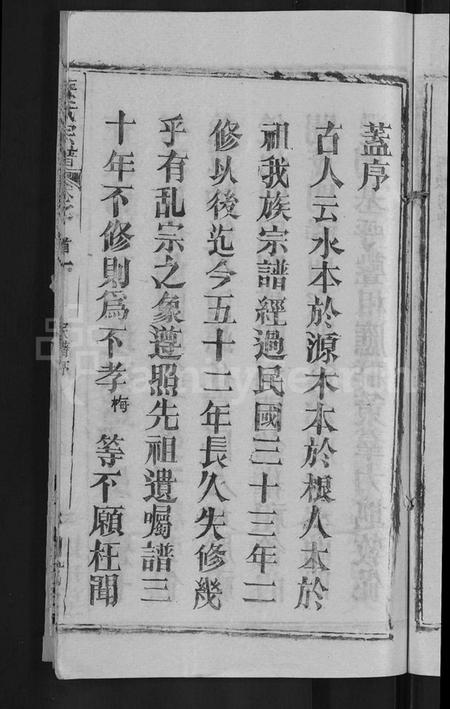 蓋序
古人云水本於源木本於根人本於
祖我族宗譜經過民國三十三年二
修以後迄今五十二年長久失修幾
乎有乱宗之象遵照先祖遺囑譜三
十年不修則為不孝梅 等不願枉聞
氏宗譜 卷之首